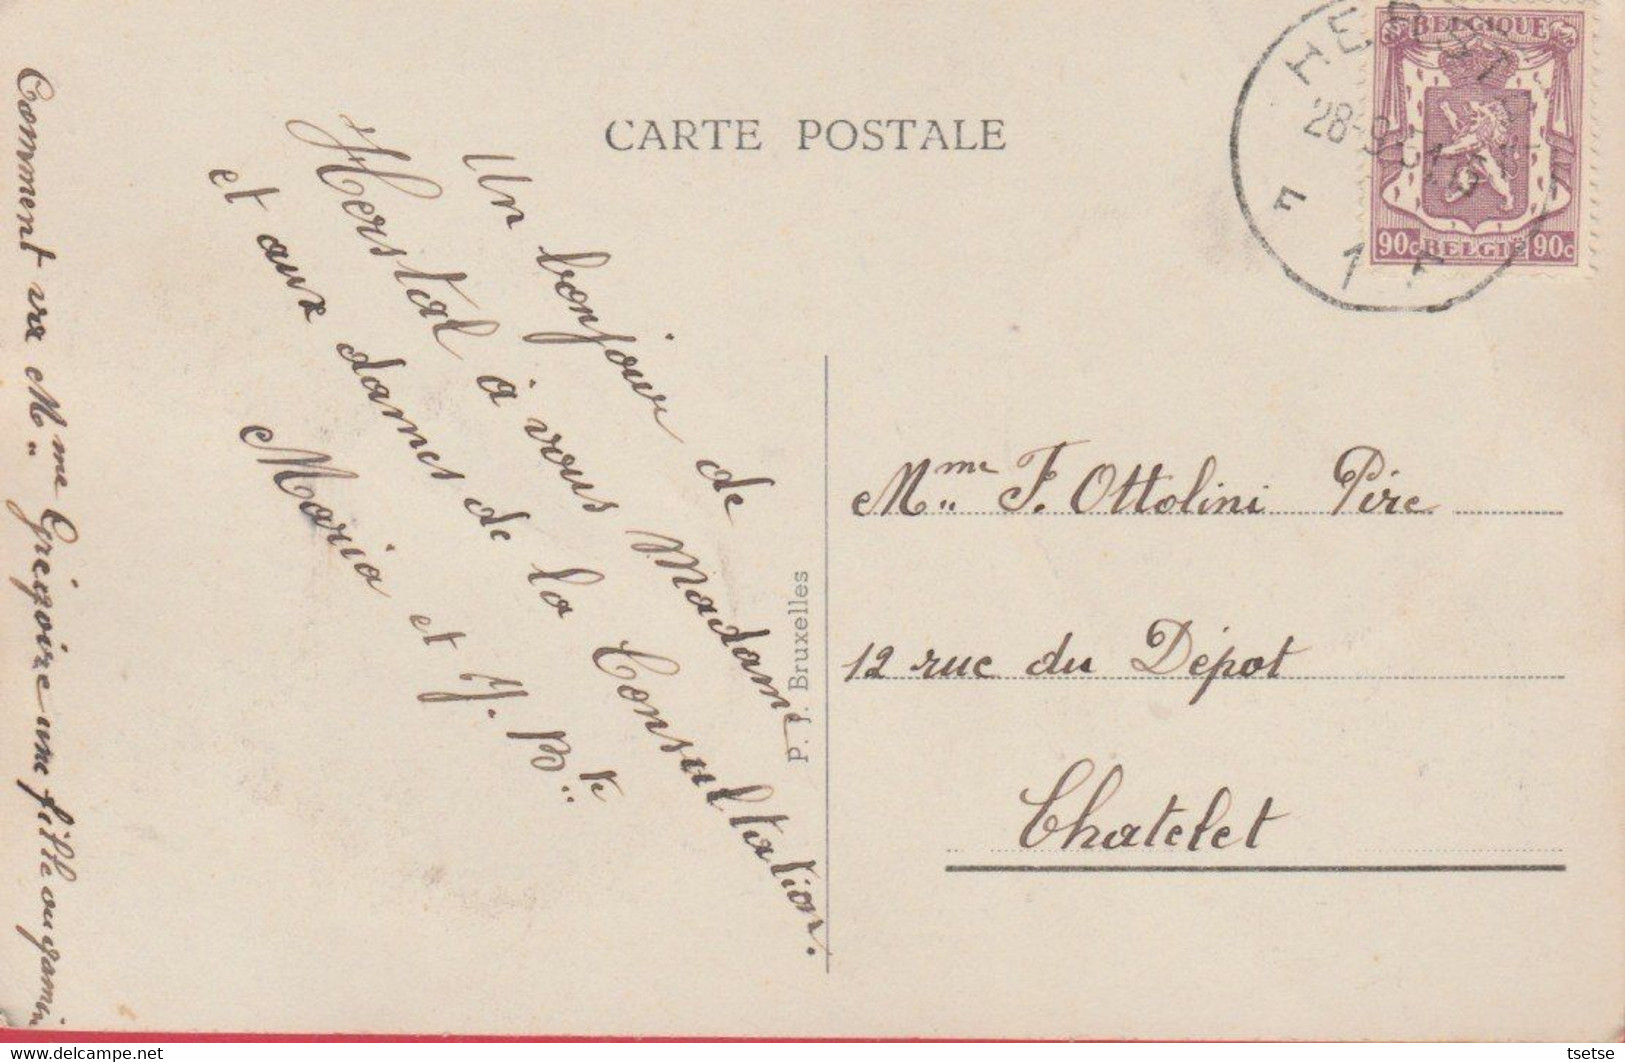 CARTE POSTALE
BELGIQUE
90c BELGIE 90c
28-9
F 1 F
Un bonjour de
Herstal à vous Madame
et aux dames de la Consultation.
Maria et J. Bte
Comment va Mme Grégoire une fille ou gamin
P. I. Bruxelles
Mme F. Ottolini Pire
12 rue du Dépot
Chatelet
tsetse